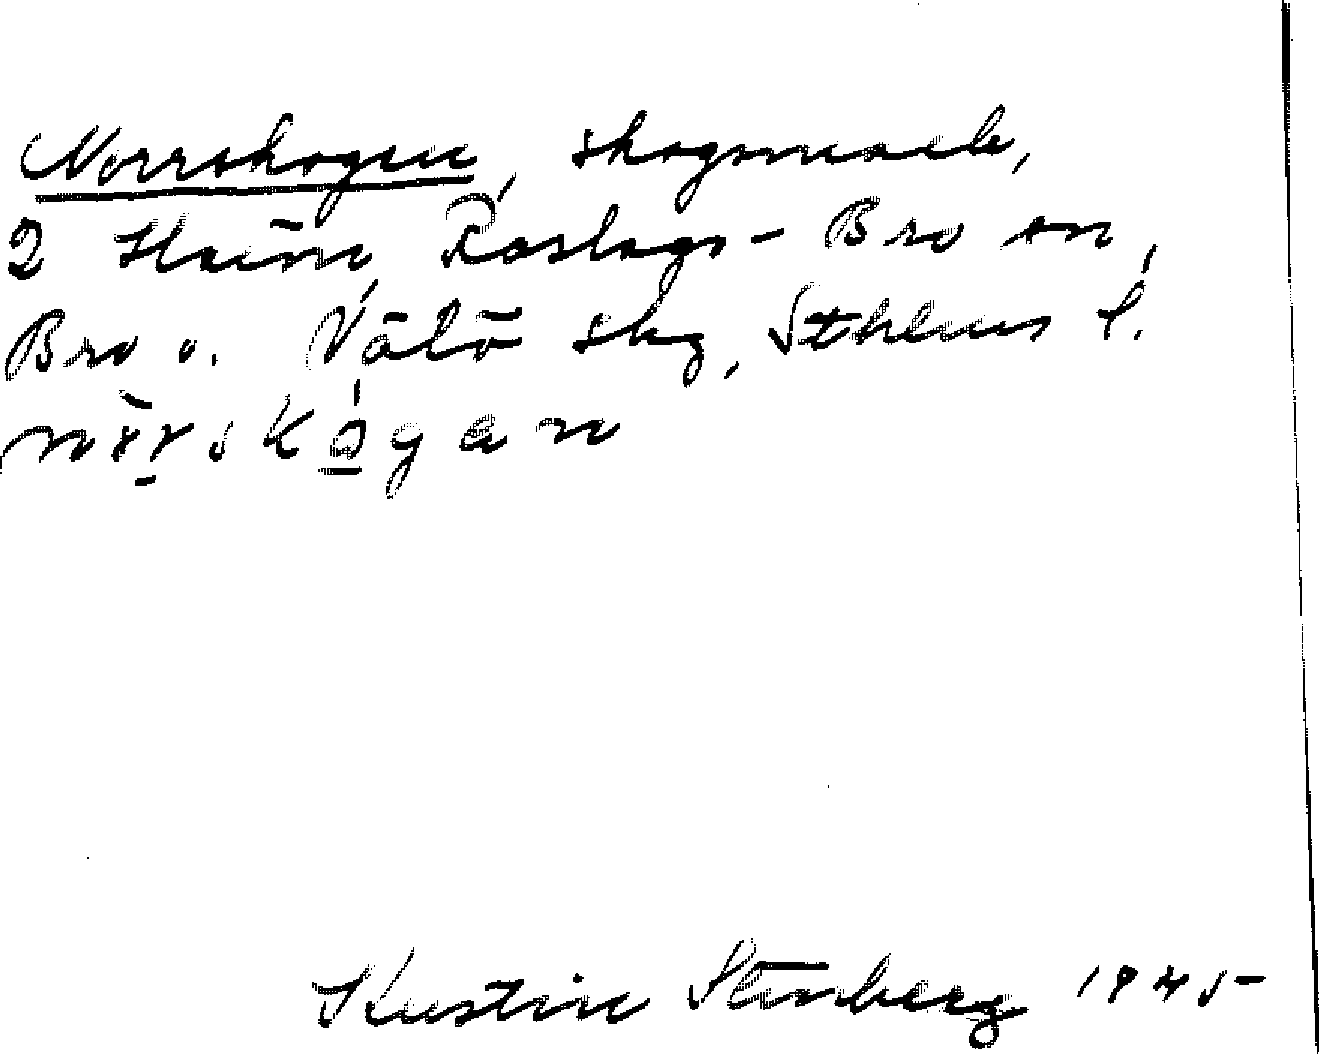 Norrskogen, skogsmark,
2 Roslags-Bro sn,
Bro o. Vätö skg, Sthlms l.
Kerstin Stenberg 1945